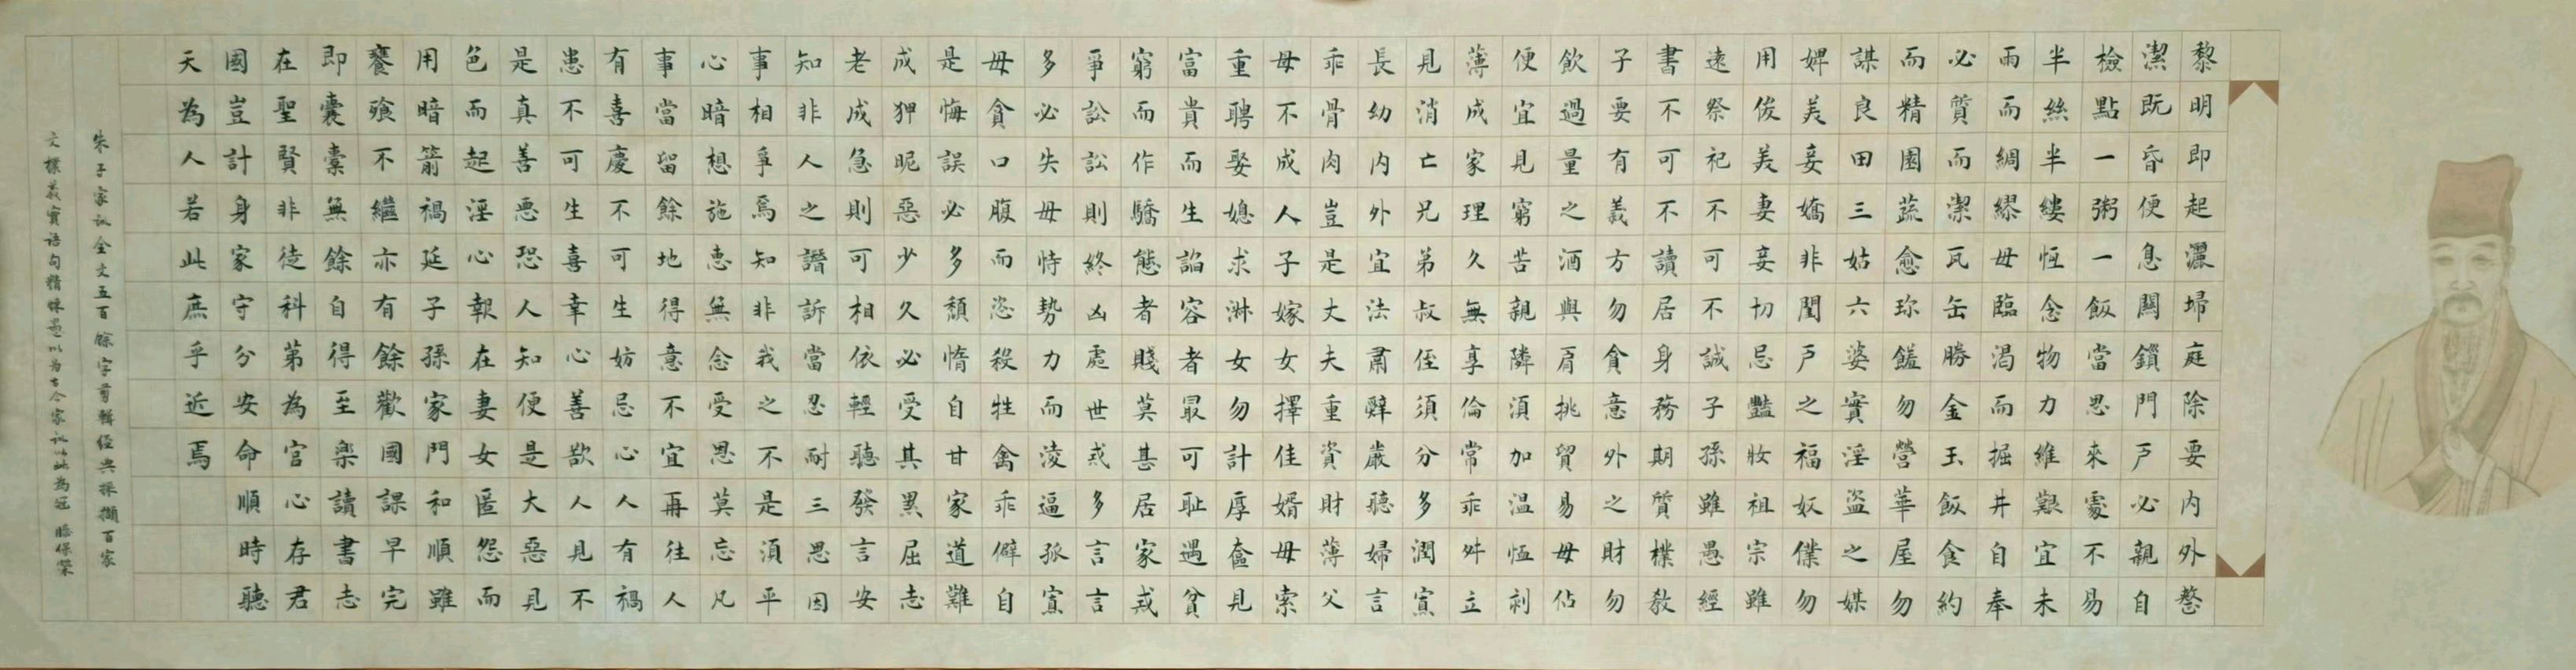 黎明即起灑埽庭除要内外整
潔既昏便息關鎖門戶必親自
檢點一粥一飯當思來處不易
半絲半縷恆念物力維艱宜未
雨而綢繆毋臨渴而掘井自奉
必質而潔瓦缶勝金玉飯食約
而精園蔬愈珍饈勿營華屋勿
謀良田三姑六婆實淫盜之媒
婢美妾嬌非閨戶之福奴僕勿
用俊美妻妾切忌豔妝祖宗雖
遠祭祀不可不誠子孫雖愚經
書不可不讀居身務期質樸教
子要有義方勿貪意外之財勿
飲過量之酒與肩挑貿易毋佔
便宜見窮苦親隣須加温恤刻
薄成家理久無享倫常乖舛立
見消亡兄弟叔侄須分多潤寡
長幼内外宜法肅辭嚴聽婦言
乖骨肉豈是丈夫重資財薄父
母不成人子嫁女擇佳婿毋索
重聘娶媳求淋女勿計厚奩見
富貴而生諂容者最可耻遇貧
窮而作驕態者賤莫甚居家戒
爭訟訟則終凶處世戒多言言
多必失毋恃勢力而淩逼孤寡
毋貪口腹而恣殺牲禽乖僻自
是悔誤必多頹惰自甘家道難
成狎昵惡少久必受其累屈志
老成急則可相依輕聽發言安
知非人之譖訴當忍耐三思因
事相爭焉知非我之不是須平
心暗想施惠無念受恩莫忘凡
事當留餘地得意不宜再往人
有喜慶不可生妨忌心人有禍
患不可生喜幸心善欲人見不
是真善惡恐人知便是大惡見
色而起淫心報在妻女匿怨而
用暗箭禍延子孫家門和順雖
饔飧不繼亦有餘歡國課早完
即囊橐無餘自得至樂讀書志
在聖賢非徒科第為官心存君
國豈計身家守分安命順時聽
天為人若此庶乎近焉
朱子家訓全文五百餘字輯經典採擷百家
文樸義實語句精愚以為古今家訓以此為冠 滕保榮